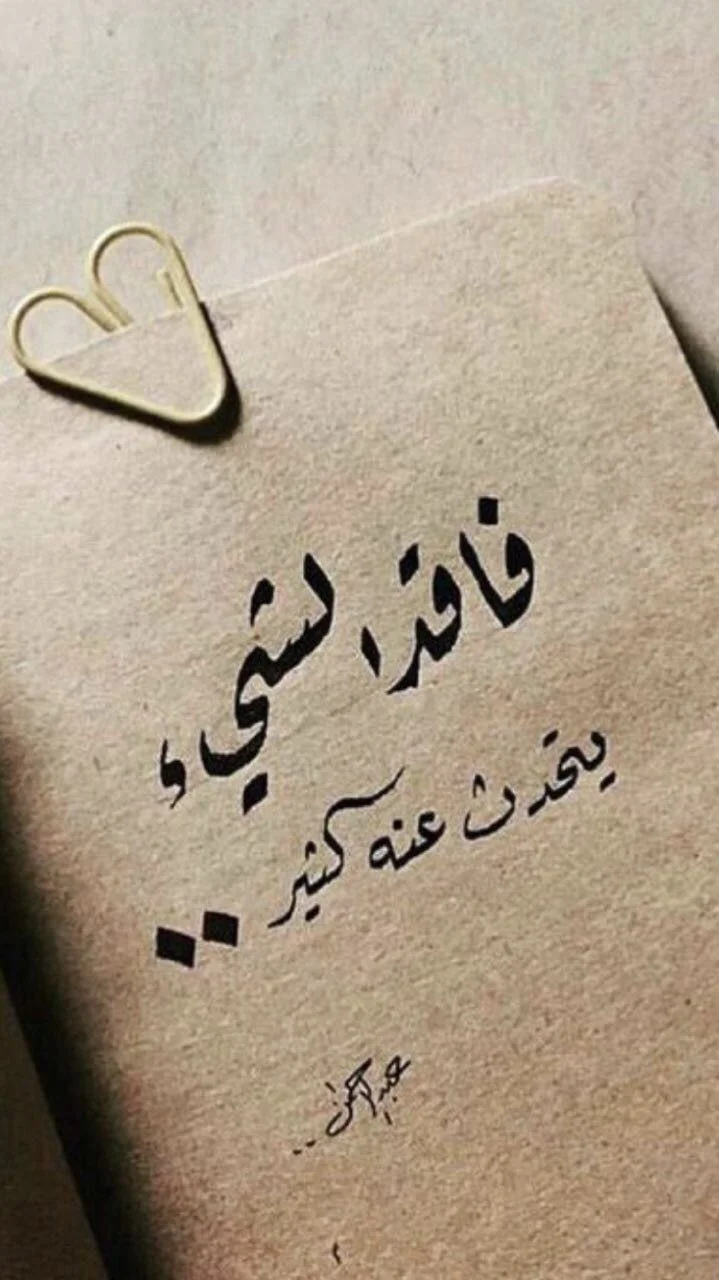 فاقد الشيء
يتحدث عنه كثير ..
عبدالرحمن ..